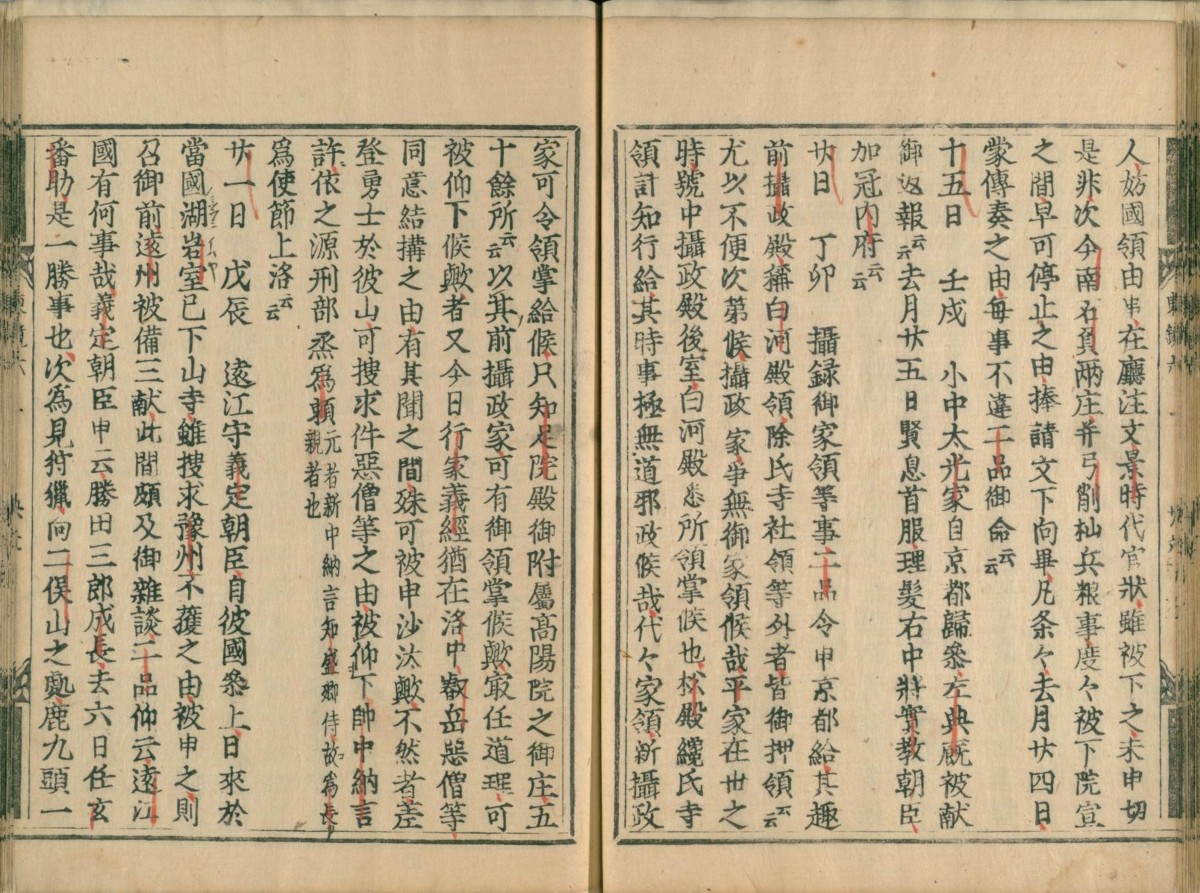 人妨國領由事在廳注文景時代官狀雖被下之未申切
是非次今南石負兩庄并弓削杣兵粮事度々被下院宣
之間早可停止之由捧請文下向畢凡条々去月廿四日
蒙傳奏之由每事不違二品御命云云
十五日 壬戌 小中太光家自京都歸參左典厩被献
御返報云云去月廿五日賢息首服理髪右中將實敎朝臣
加冠内府云云
廿日 丁卯 攝録御家領等事二品令申京都給其趣
前攝政殿稱白河殿領除氏寺社領等外者皆御押領云云
尤以不便次第候攝政家爭無御家領候哉平家在世之
時號中攝政殿後室白河殿悉所領掌候也松殿纔氏寺
領計知行給其時事極無道邪政候哉代々家領新攝政
家可令領掌給候只知足院殿御附屬髙陽院之御庄五
十餘所云云以其前攝政家可有御領掌候歟㝡任道理可
被仰下候歟者又今日行家義經猶在洛中叡岳惡僧等
同意結搆之由有其聞之間殊可被申沙汰歟不然者差
登勇士於彼山可搜求件惡僧等之由被仰下帥中納言
許依之源刑部丞爲頼元者新中納言知盛卿侍故爲長親者也
爲使節上洛云云
廿一日 戊辰 遠江守義定朝臣自彼國參上日來於
當國湖岩室已下山寺雖搜求豫州不獲之由被申之則
召御前遠州被備三献此間頗及御雜談二品仰云遠江
國有何事哉義定朝臣申云勝田三郎成長去六日任玄
番助是一勝事也次為見狩獵向二俣山之處鹿九頭一